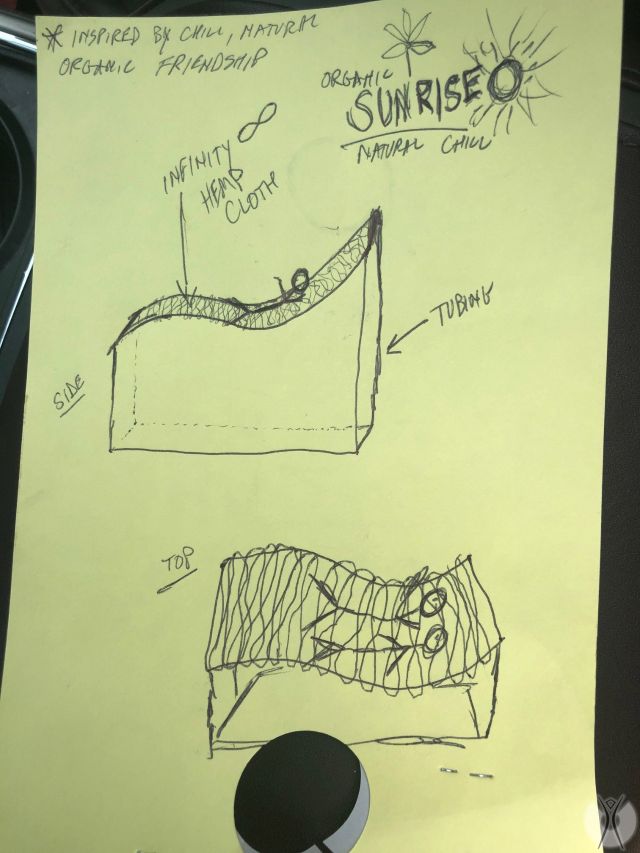 * INSPIRED BY CHILL, NATURAL
ORGANIC FRIENDSHIP
ORGANIC
SUNRISE
NATURAL CHILL
INFINITY ∞
HEMP
CLOTH
TUBING
SIDE
TOP